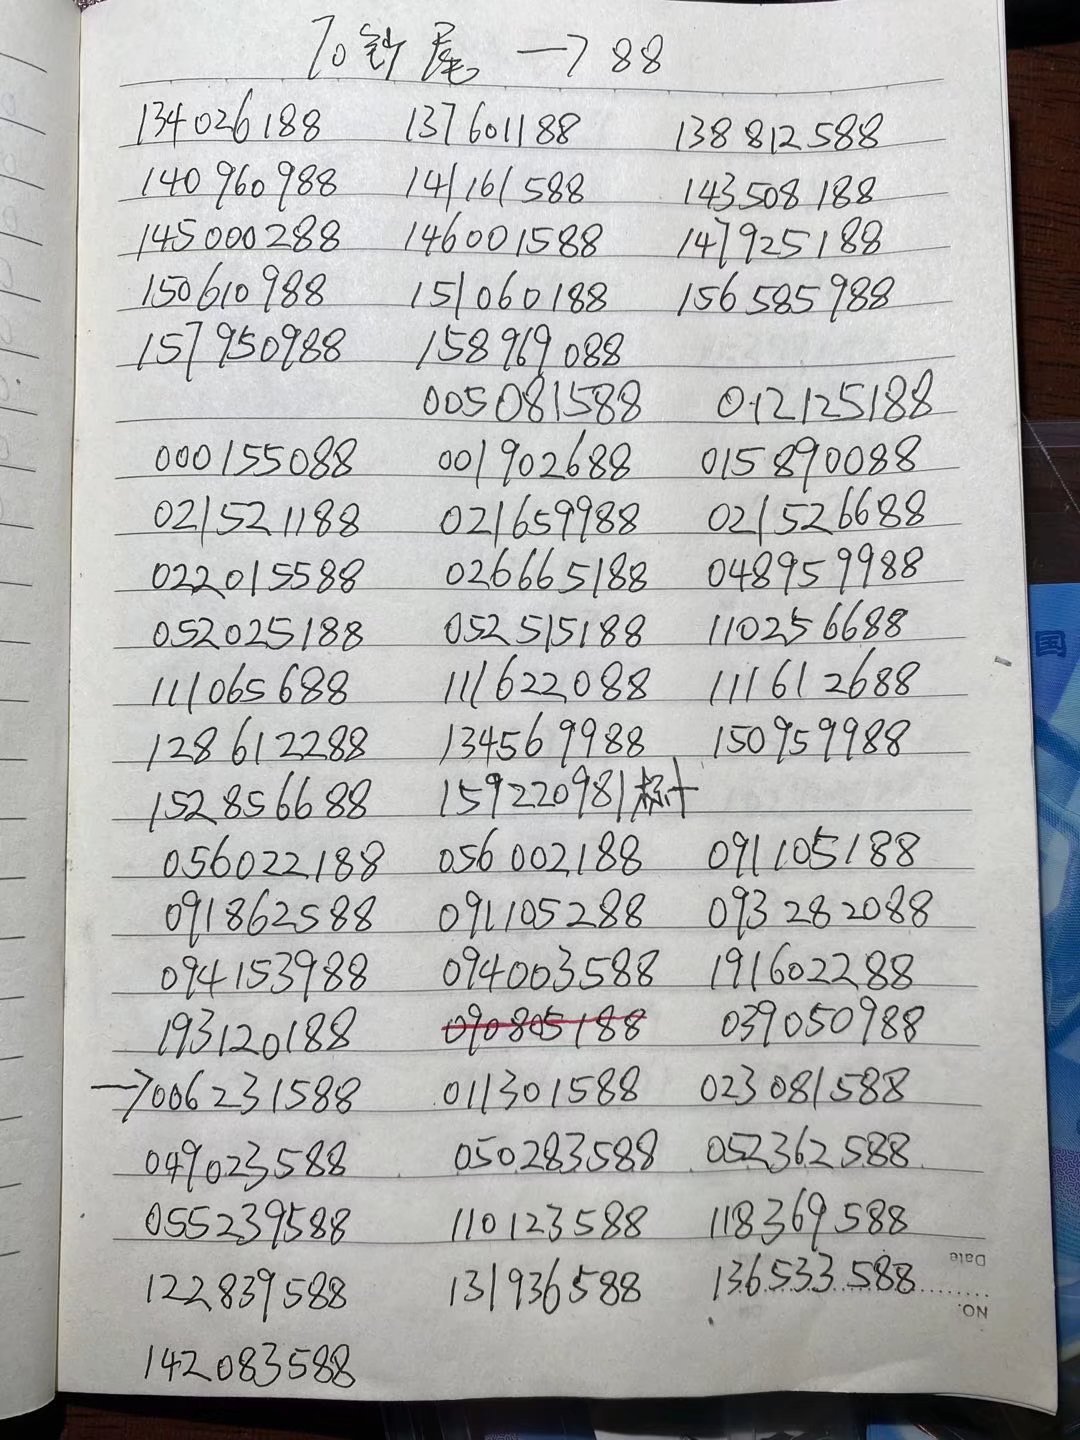 70钞尾 → 88
134026188 137601188 138812588
140960988 141161588 143508188
145000288 146001588 147925188
150610988 151060188 156585988
157950988 158969088
005081588 012125188
000155088 001902688 015890088
021521188 021659988 021526688
022015588 026665188 048959988
052025188 052515188 110256688
111065688 111622088 111612688
128612288 134569988 150959988
152856688 159220981标十
056022188 056002188 091105188
091862588 091105288 093282088
094153988 094003588 191602288
193120188 090805188 039050988
→006231588 011301588 023081588
049023588 050283588 052362588
055239588 110123588 118369588
Date
122839588 131936588 136533588
NO.
142083588
国